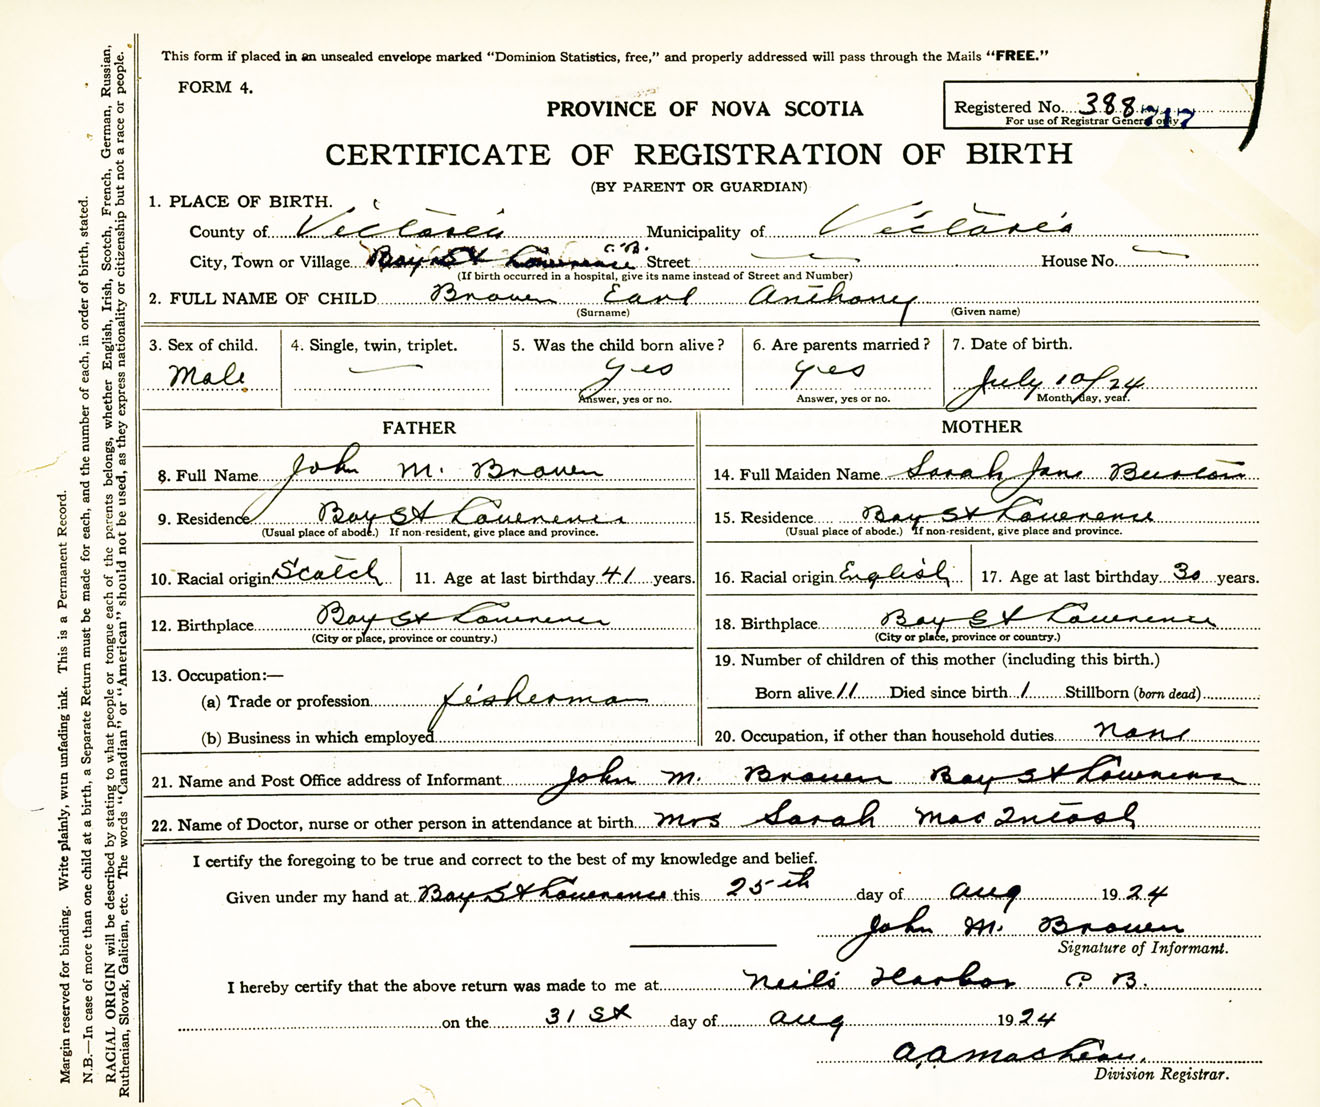 This form if placed in an unsealed envelope marked "Dominion Statistics, free," and properly addressed will pass through the Mails "FREE."
FORM 4.
PROVINCE OF NOVA SCOTIA
Registered No. 388 717
For use of Registrar General only
CERTIFICATE OF REGISTRATION OF BIRTH
(BY PARENT OR GUARDIAN)
1. PLACE OF BIRTH.
County of Victoria Municipality of Victoria
City, Town or Village Bay St Lawrence C.B. Street House No.
(If birth occurred in a hospital, give its name instead of Street and Number)
2. FULL NAME OF CHILD Brown Earl Anthony
(Surname) (Given name)
3. Sex of child. 4. Single, twin, triplet. 5. Was the child born alive? 6. Are parents married? 7. Date of birth.
Male yes yes July 10/24
Answer, yes or no. Answer, yes or no. Month, day, year.
FATHER MOTHER
8. Full Name John M. Brown 14. Full Maiden Name Sarah Jane Burton
9. Residence Bay St Lawrence 15. Residence Bay St Lawrence
(Usual place of abode.) If non-resident, give place and province. (Usual place of abode.) If non-resident, give place and province.
10. Racial origin Scotch 11. Age at last birthday 41 years. 16. Racial origin English 17. Age at last birthday 30 years.
12. Birthplace Bay St Lawrence 18. Birthplace Bay St Lawrence
(City or place, province or country.) (City or place, province or country.)
13. Occupation:— 19. Number of children of this mother (including this birth.)
(a) Trade or profession fisherman Born alive 11 Died since birth 1 Stillborn (born dead)
(b) Business in which employed 20. Occupation, if other than household duties None
21. Name and Post Office address of Informant John M. Brown Bay St Lawrence
22. Name of Doctor, nurse or other person in attendance at birth Mrs Sarah MacIntosh
I certify the foregoing to be true and correct to the best of my knowledge and belief.
Given under my hand at Bay St Lawrence this 25th day of Aug 1924
John M. Brown
Signature of Informant.
I hereby certify that the above return was made to me at Neil's Harbor C. B.
on the 31st day of Aug 1924
A. A.
Division Registrar.
Margin reserved for binding. Write plainly, with unfading ink. This is a Permanent Record.
N.B.—In case of more than one child at a birth, a Separate Return must be made for each, and the number of each, in order of birth, stated.
RACIAL ORIGIN will be described by stating to what people or tongue each of the parents belongs, whether English, Irish, Scotch, French, German, Russian,
Ruthenian, Slovak, Galician, etc. The words "Canadian" or "American" should not be used, as they express nationality or citizenship but not a race or people.